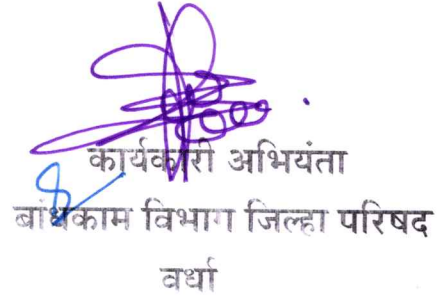 कार्यकारी अभियंता
बांधकाम विभाग जिल्हा परिषद
वर्धा